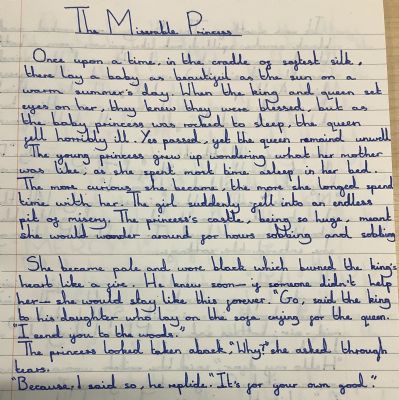 The Miserable Princess
Once upon a time, in the cradle of softest silk,
there lay a baby as beautiful as the sun on a
warm summer's day. When the king and queen set
eyes on her, they knew they were blessed, but as
the baby princess was rocked to sleep, the queen
fell horribly ill. Yes passed, yet the queen remaind unwell
The young princess grew up wondering what her mother
was like, as she spent most time asleep in her bed.
The more curious she became, the more she longed spend
time with her. The girl suddenly fell into an endless
pit of misery. The princess's castle, being so huge, meant
she would wonder around for hours sobbing and sobbing
She became pale and wore black which burned the king's
heart like a fire. He knew soon— if someone didn't help
her— she would stay like this forever. "Go, said the king
to his daughter who lay on the sofa crying for the queen.
"I send you to the woods."
The princess looked taken aback, "Why?" she asked through
tears.
"Because I said so, he replide. "It's for your own good."